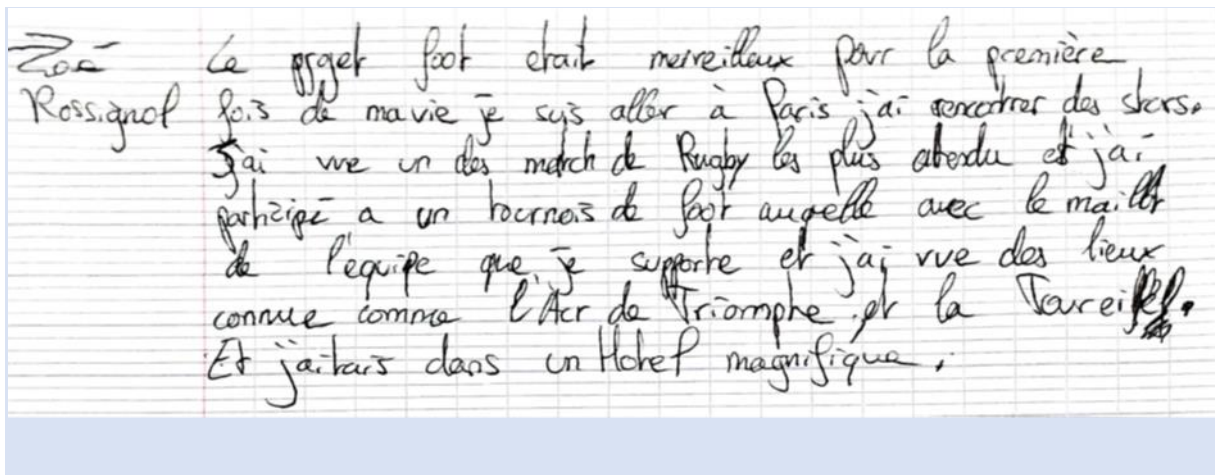 Zoé Le projet foot etait merveilleux pour la première
Rossignol fois de ma vie je suis aller à Paris j'ai rencontrer des stars.
J'ai vue un des match de Rugby les plus attendu et j'ai
participé a un tournois de foot auquelle avec le maillot
de l'équipe que je supporte et j'ai vue des lieux
connue comme l'Acr de Triomphe et la Toureiffel.
Et j'aitais dans un Hotel magnifique.